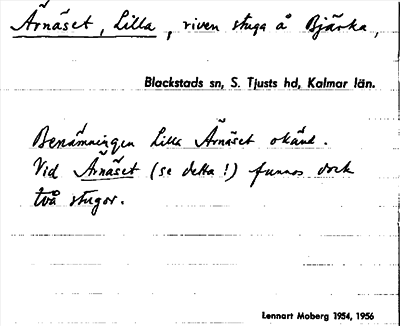 Årnäset, Lilla, riven stuga å Bjärka,
Blackstads sn, S. Tjusts hd, Kalmar län.
Benämningen Lilla Årnäset okänd.
Vid Årnäset (se detta!) funnos dock
två stugor.
Lennart Moberg 1954, 1956